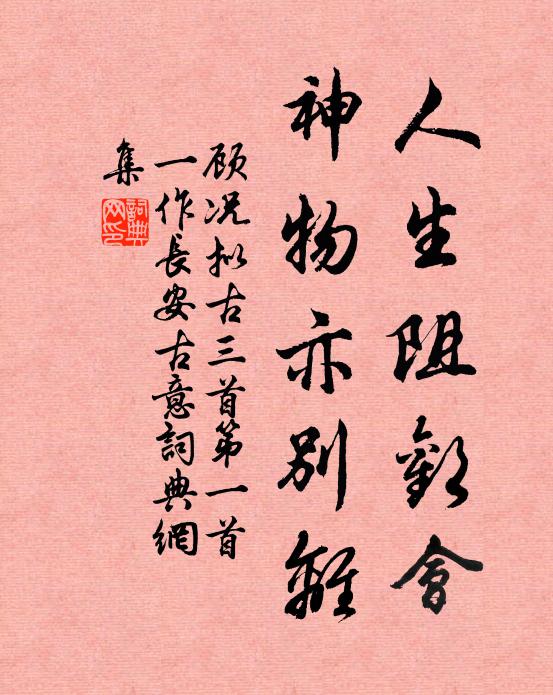 人生阻歡會
神物亦別離
顾况拟古三首第一首
一作長安古意詞典網
集
詞典
网印